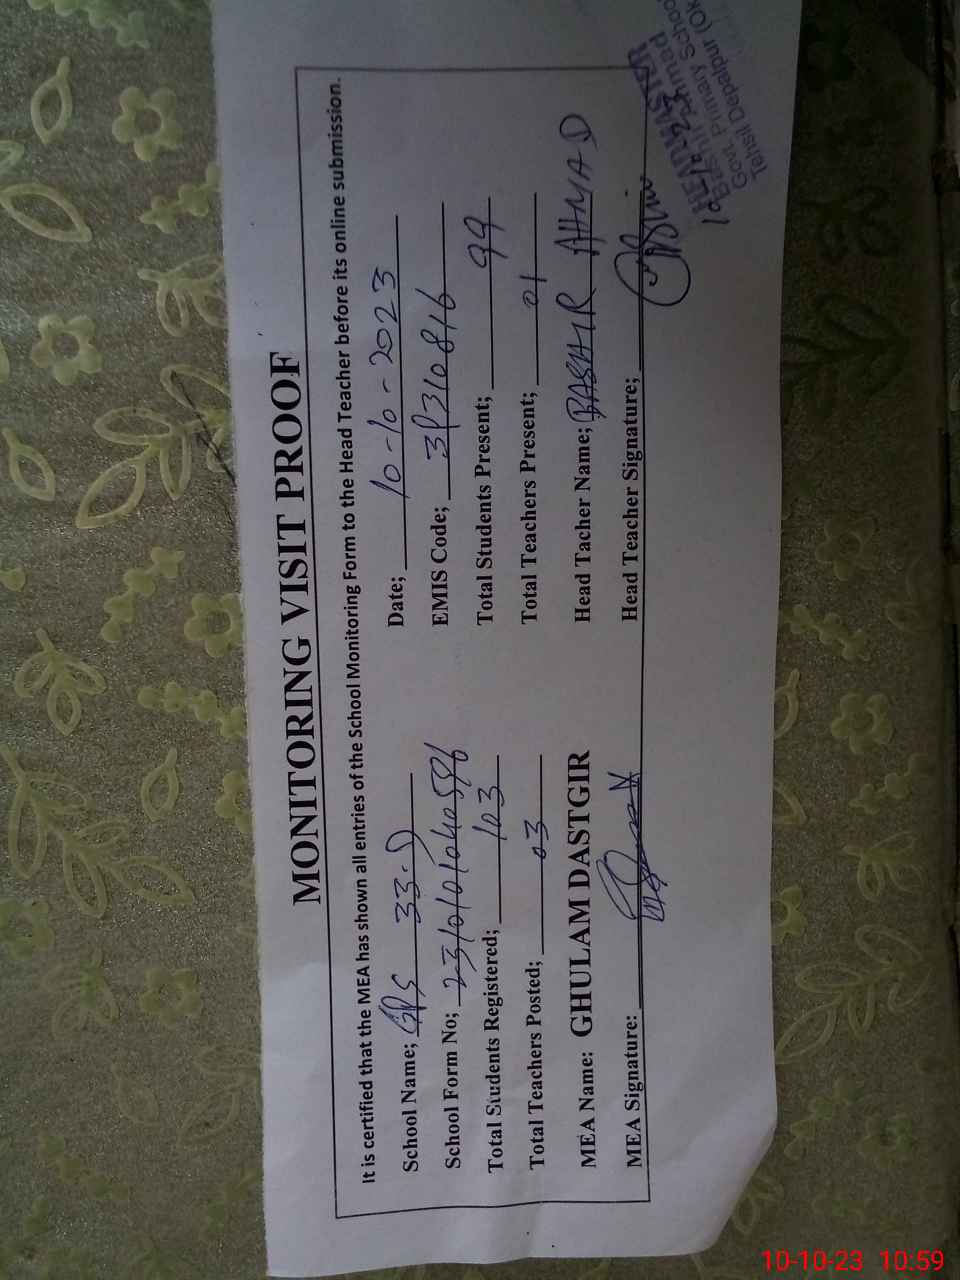 MONITORING VISIT PROOF
It is certified that the MEA has shown all entries of the School Monitoring Form to the Head Teacher before its online submission.
School Name; GPS 33.D Date; 10-10-2023
School Form No; EMIS Code; 39310816
Total Students Registered; 103 Total Students Present; 99
Total Teachers Posted; 03 Total Teachers Present; 01
MEA Name: GHULAM DASTGIR Head Tacher Name; BASHIR AHMAD
MEA Signature: Head Teacher Signature;
HEADMASTER
Bashir Ahmad
Govt. Primary School
Tehsil Depalpur (Ok
10-10-23 10:59